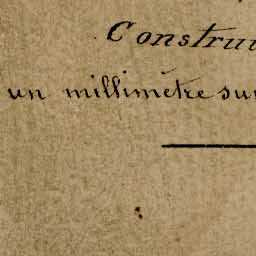 Construi
un millimètre sur